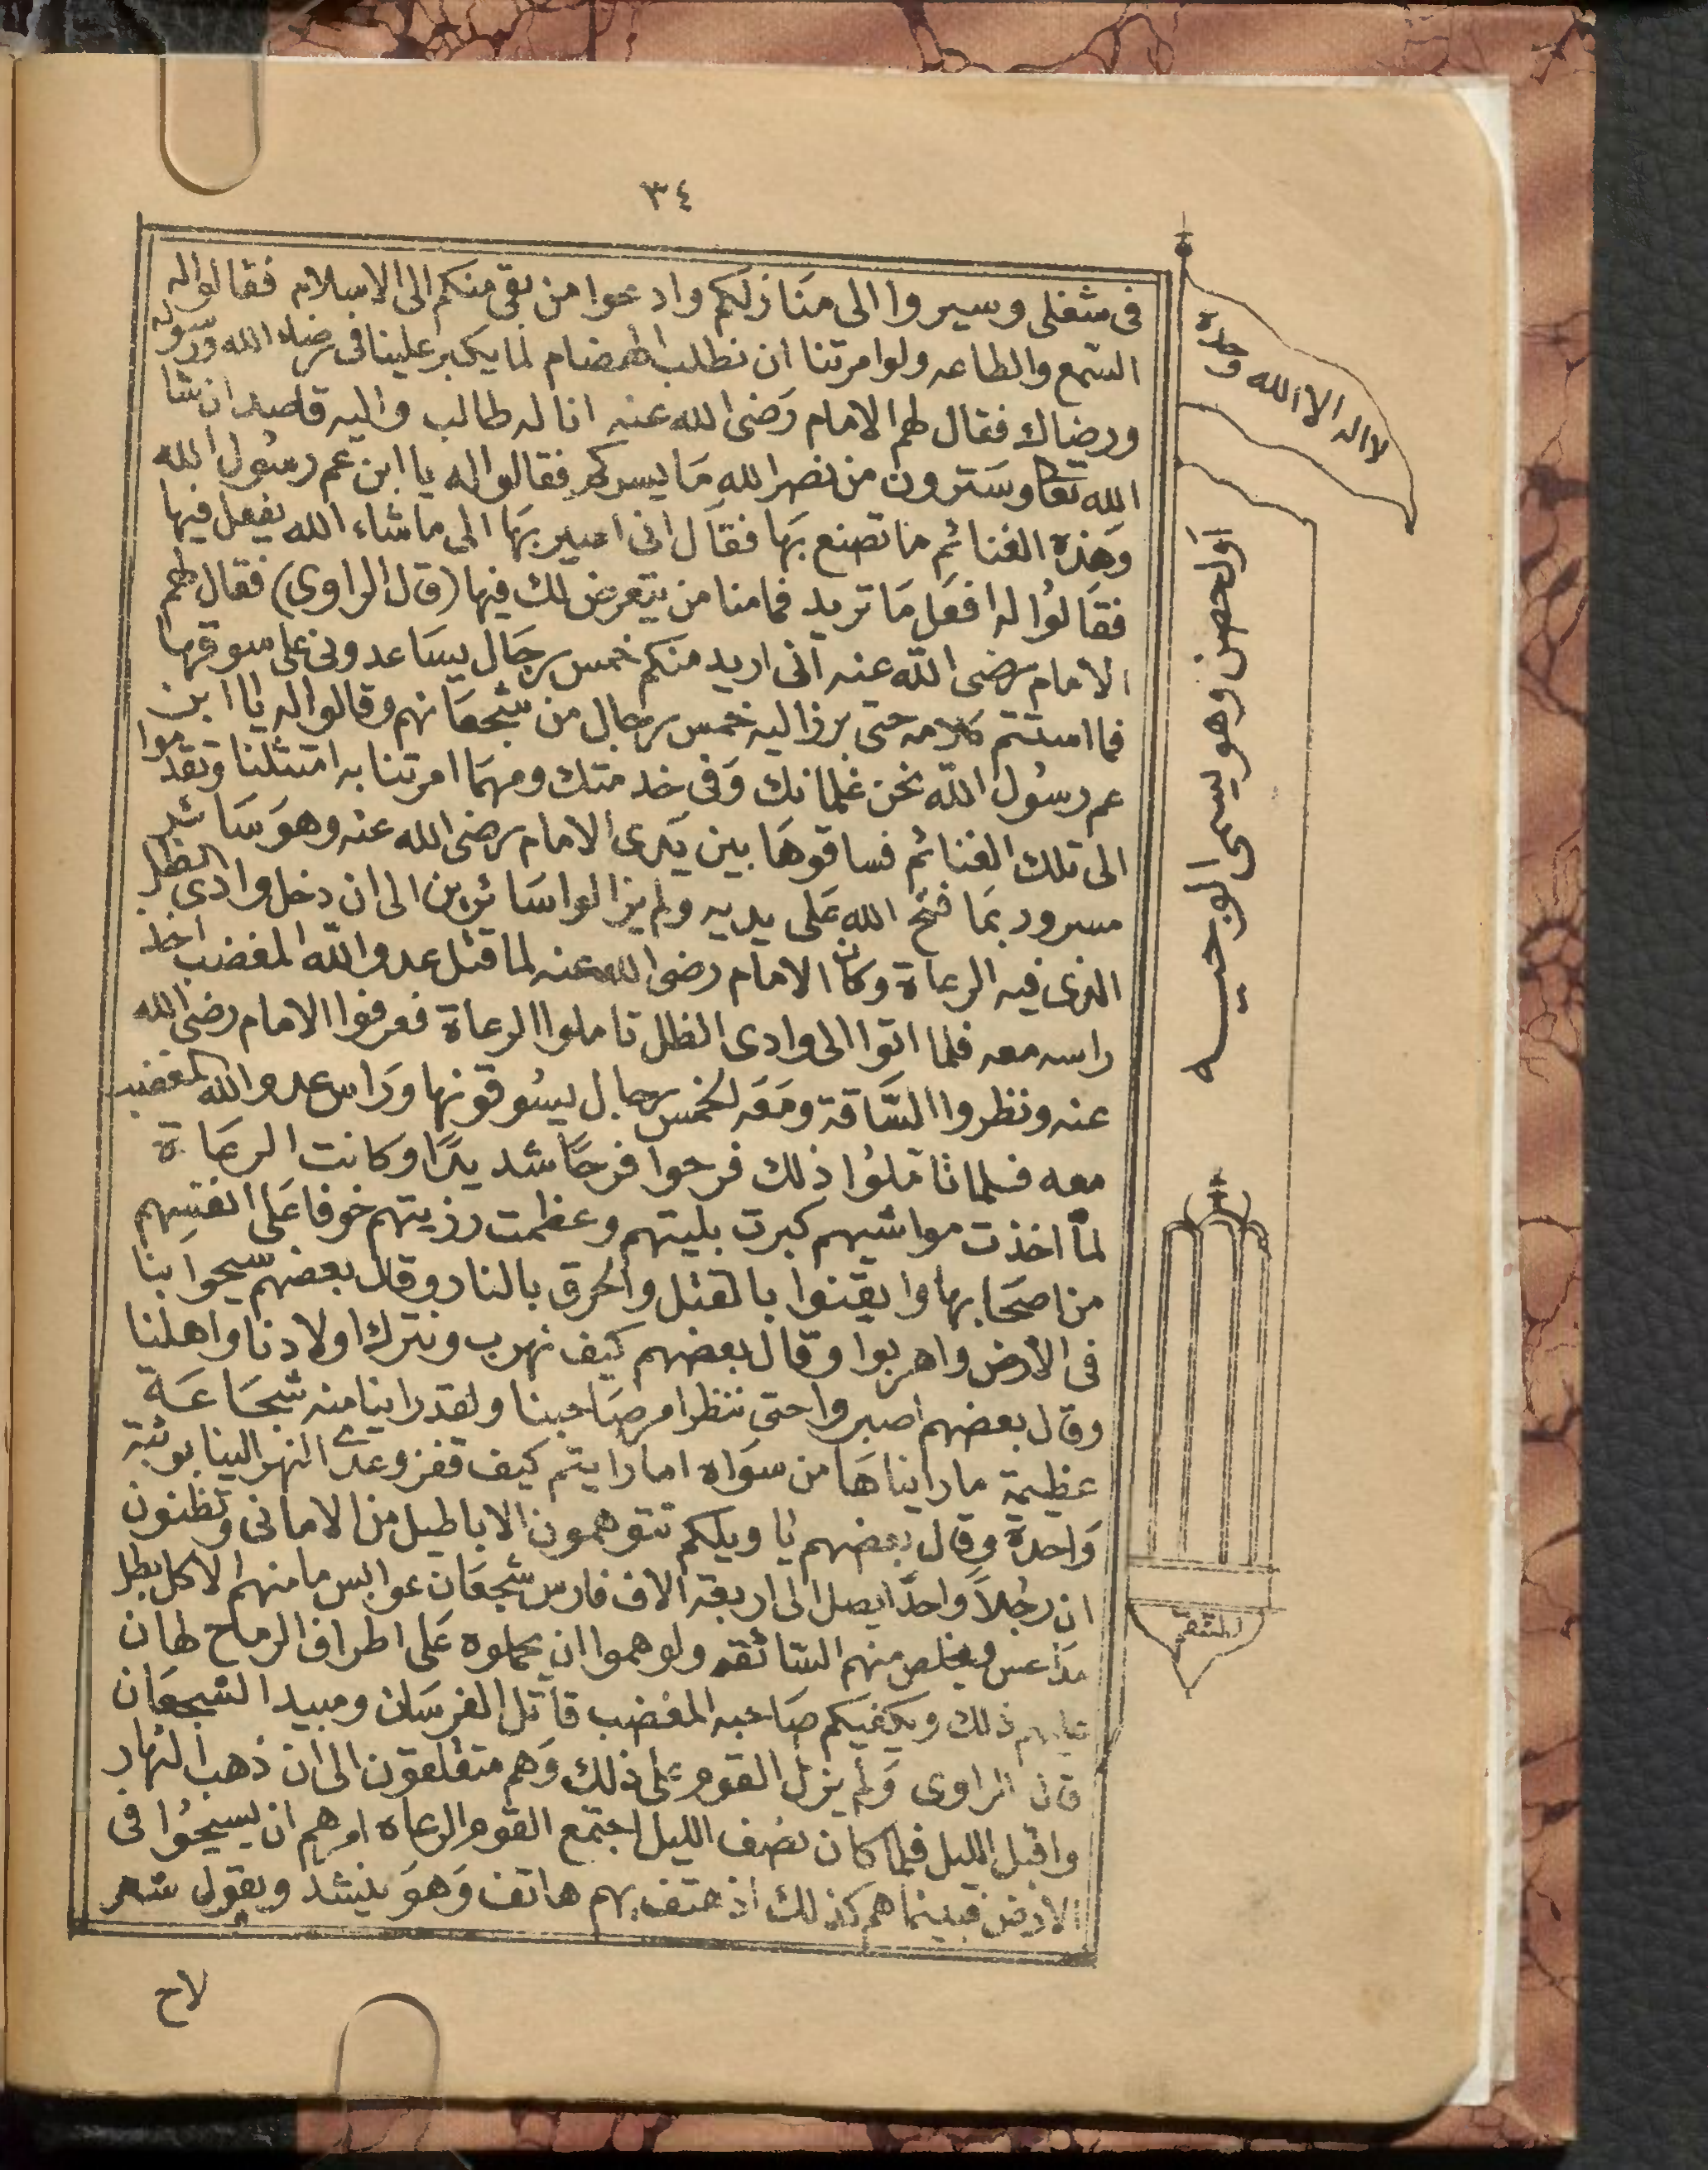 ٣٤
فى شغلى وسيروا الى منازلكم وادعوا من بقى منكم الى الاسلام فقالوا له
السمع والطاعه ولو امرتنا ان نطلب الهضام لما يكبر علينا فى رضاء الله ورسوله
ورضاك فقال لهم الامام رَضى الله عنه انا له طالب واليه قاصد ان شا
الله تعا وسترون من نصر الله مَا يسركم فقالوا له يا ابن عم رسُول الله
وَهذه الغنائم ما تصنع بهَا فقال انى اسير بهَا الى ما شاء الله يفعل فيها
فقَالوُا له افعَل مَا تريد فما منا من يتعرض لك فيها (قال الراوى) فقال لهم
الامام رضى الله عنه انى اريد منكم خمس رجَال يسَاعدونى على سوقها
فما استتم كلامه حتى برز اليه خمس رجال من شجعَانهم وقالوا له يا ابن
عم رسُول الله نحن غلمانك وَفى خدمتك ومهمَا امرتنا به امتثلنا وتقدموا
الى تلك الغنائم فساقوهَا بين يَدى الامام رضى الله عنه وهوَ سَائر
مسرور بمَا فتح الله عَلى يديه ولم يزالوا سَائرين الى ان دخل وادى الظل
الذى فيه الرعاة وكان الامام رضى الله عنه لما قتل عدو الله المغضب اخذ
راسه معه فلما اتوا الى وادى الظل تاملوا الرعاة فعرفوا الامام رضى الله
عنه ونظروا السَّاقة ومَعَه الخمس رجال يسُوقونها ورَاس عدو الله المغضب
معه فلما تاملوُا ذلك فرحوا فرحًا شديدًا وكانت الرعَاة
لمَّا اخذت مواشيهم كبرت بليتهم وعظمت رزيتهم خوفا عَلى انفسِهم
من اصحَابها وايقنوا بالقتل والحرق بالنار وقال بعضهم سيحوا بنا
فى الأرض واهربوا وقال بعضهم كيف نهرب ونترك اولادنا واهلنا
وقال بعضهم اصبروا حتى ننظر امر صَاحبنا ولقد راينا منه شجَاعَة
عظيمة ما راينا هَا من سوَاه اما رايتم كيف قفز وعدى النهر الينا بوثبة
وَاحدة وقال بعضهم يا ويلكم تتوهمون الاباطيل من الامانى وتظنون
ان رجُلاً وَاحدًا يصل الى اربعة الاف فارس شجعَان عوابس ما منهم الا كل بطل
مدَاعس ويخلص منهم السَّائقه ولو هموا ان يحملوه عَلى اطراف الرماح لهان
عليهم ذلك ويكفيكم صَاحبه المغضب قاتل الفرسَان ومبيد الشجعَان
قال الراوى وَلم يزل القوم على ذلك وَهم متقلقون الى ان ذهب النهار
واقبل الليل فلما كان نصف الليل اجتمع القوم الرعاه امرهم ان يسيحُوا فى
الارض فبينما هم كذلك اذ هتف بهم هاتف وَهوَ ينشد ويقول شعر
لاح
لا اله الا الله وحده
اول حصن وهو يسمى الوجيه